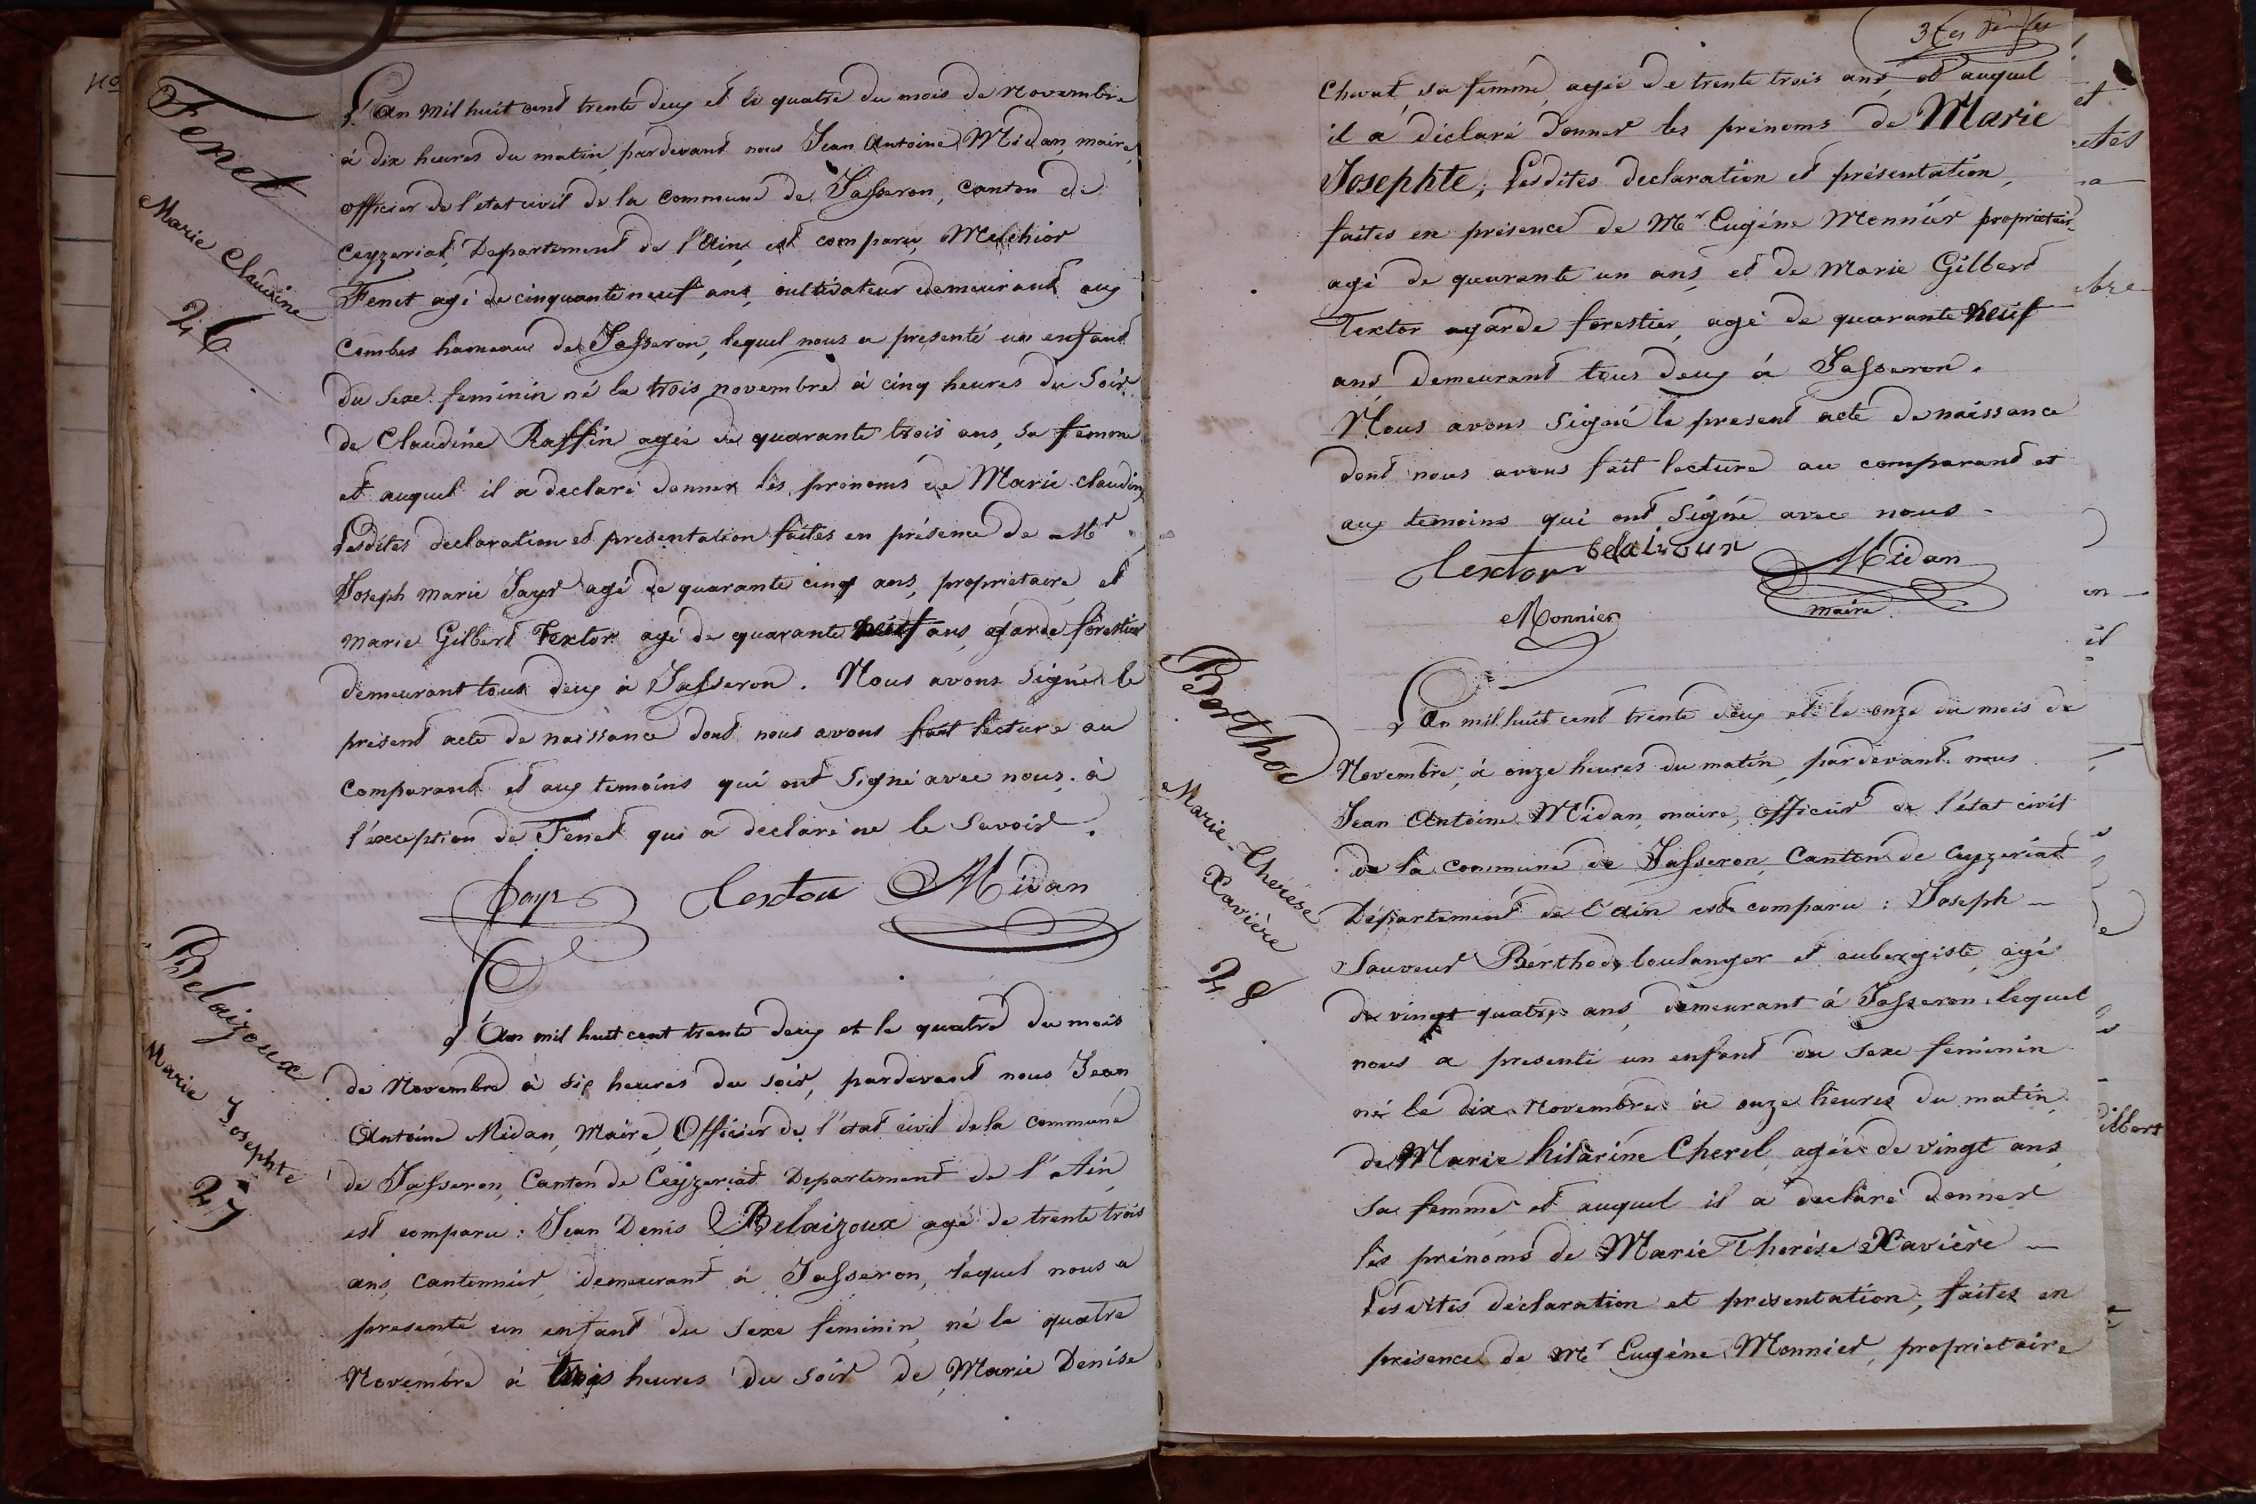 Fenet
Marie Claudine
26
L'an mil huit cent trente deux et le quatre du mois de Novembre
à dix heures du matin, pardevant nous Jean Antoine Midan, maire,
officier de l'etat civil de la commune de Jasseron, canton de
Ceyzeriat, Departement de l'Ain, est comparu Melchior
Fenet agé de cinquante neuf ans, cultivateur demeurant aux
Combes hameau de Jasseron, lequel nous a presenté un enfant
du sexe feminin né le trois novembre à cinq heures du soir
de Claudine Raffin agée de quarante trois ans, sa femme
et auquel il a declaré donner les prenoms de Marie Claudine
Lesdites declaration et presentation faites en présence de Mr
Joseph marie Jayr agé de quarante cinq ans, proprietaire, et
marie Gilbert Textor agé de quarante neuf ans, garde forestier
demeurant tous deux à Jasseron. Nous avons signé le
présent acte de naissance dont nous avons fait lecture au
comparant et aux temoins qui ont signé avec nous, à
l'exception de Fenet qui a declaré ne le savoir.
Jayr Textor Midan
Belaizoux
Marie Josephte
27
L'An mil huit cent trente deux et le quatre du mois
de Novembre à six heures du soir, pardevant nous Jean
Antoine Midan, Maire, Officier de l'etat civil de la commune
de Jasseron, Canton de Ceyzeriat Departement de l'Ain,
est comparu : Jean Denis Belaizoux agé de trente trois
ans, cantonnier, demeurant à Jasseron, lequel nous a
presenté un enfant du sexe feminin, né le quatre
Novembre à trois heures du soir de Marie Denise
Chevat, sa femme, agée de trente trois ans, et auquel
il a déclaré donner les prénoms de Marie
Josephte; Lesdites declaration et présentation,
faites en présence de Mr Eugéne Monnier proprietair
agé de quarante un ans, et de Marie Gilbert
Textor garde forestier, agé de quarante neuf
ans demeurant tous deux à Jasseron.
Nous avons signé le present acte de naissance
dont nous avons fait lecture au comparant et
aux temoins qui ont signé avec nous.
Textor Belaizoux Midan
Monnier maire
Berthod
Marie-Thérése
Xavière
28
L'an mil huit cent trente deux et le onze du mois de
Novembre, à onze heures du matin, pardevant nous
Jean Antoine Midan, maire, officier de l'état civil
de la commune de Jasseron, Canton de Ceyzeriat
Département de l'ain est comparu : Joseph
Sauveur Berthod, boulanger et aubergiste, agé
de vingt quatre ans, demeurant à Jasseron, lequel
nous a presenté un enfant du sexe feminin
né le dix Novembre à onze heures du matin,
de Marie hilarine Cherel, agée de vingt ans,
sa femme et auquel il a declaré donner
les prénoms de Marie Therése Xavière
Lesdites déclaration et présentation, faites en
présence de Mr Eugéne Monnier, proprietaire